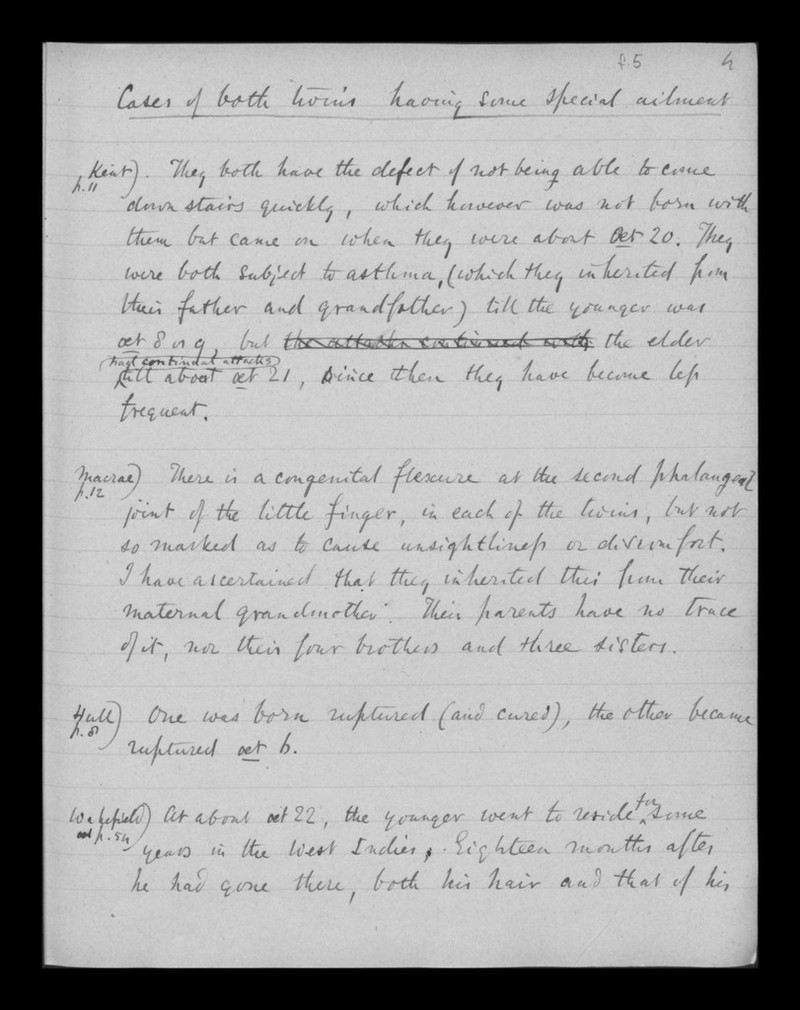 f.5 4
Cases of both twins having some special ailment
Kent). They both have the defect of not being able to come
p.11
down stairs quickly, which however was not born with
them but came on when they were about æt 20. They
were both subject to asthma, (which they inherited from
their father and grandfather) till the younger was
æt 8 or 9, but the attacks continued with the elder
had continual attacks
till about æt 21, since then they have become less
frequent.
Macrae) There is a congenital flexure at the second phalangeal
p.12
joint of the little finger, in each of the twins, but not
so marked as to cause unsightliness or discomfort.
I have ascertained that they inherited this from their
maternal grandmother. Their parents have no trace
of it, nor their four brothers and three sisters.
Hull) One was born ruptured (and cured), the other became
p.8
ruptured æt 6.
Wakefield) At about æt 22, the younger went to reside for some
p.54
years in the West Indies. Eighteen months after
he had gone there, both his hair and that of his